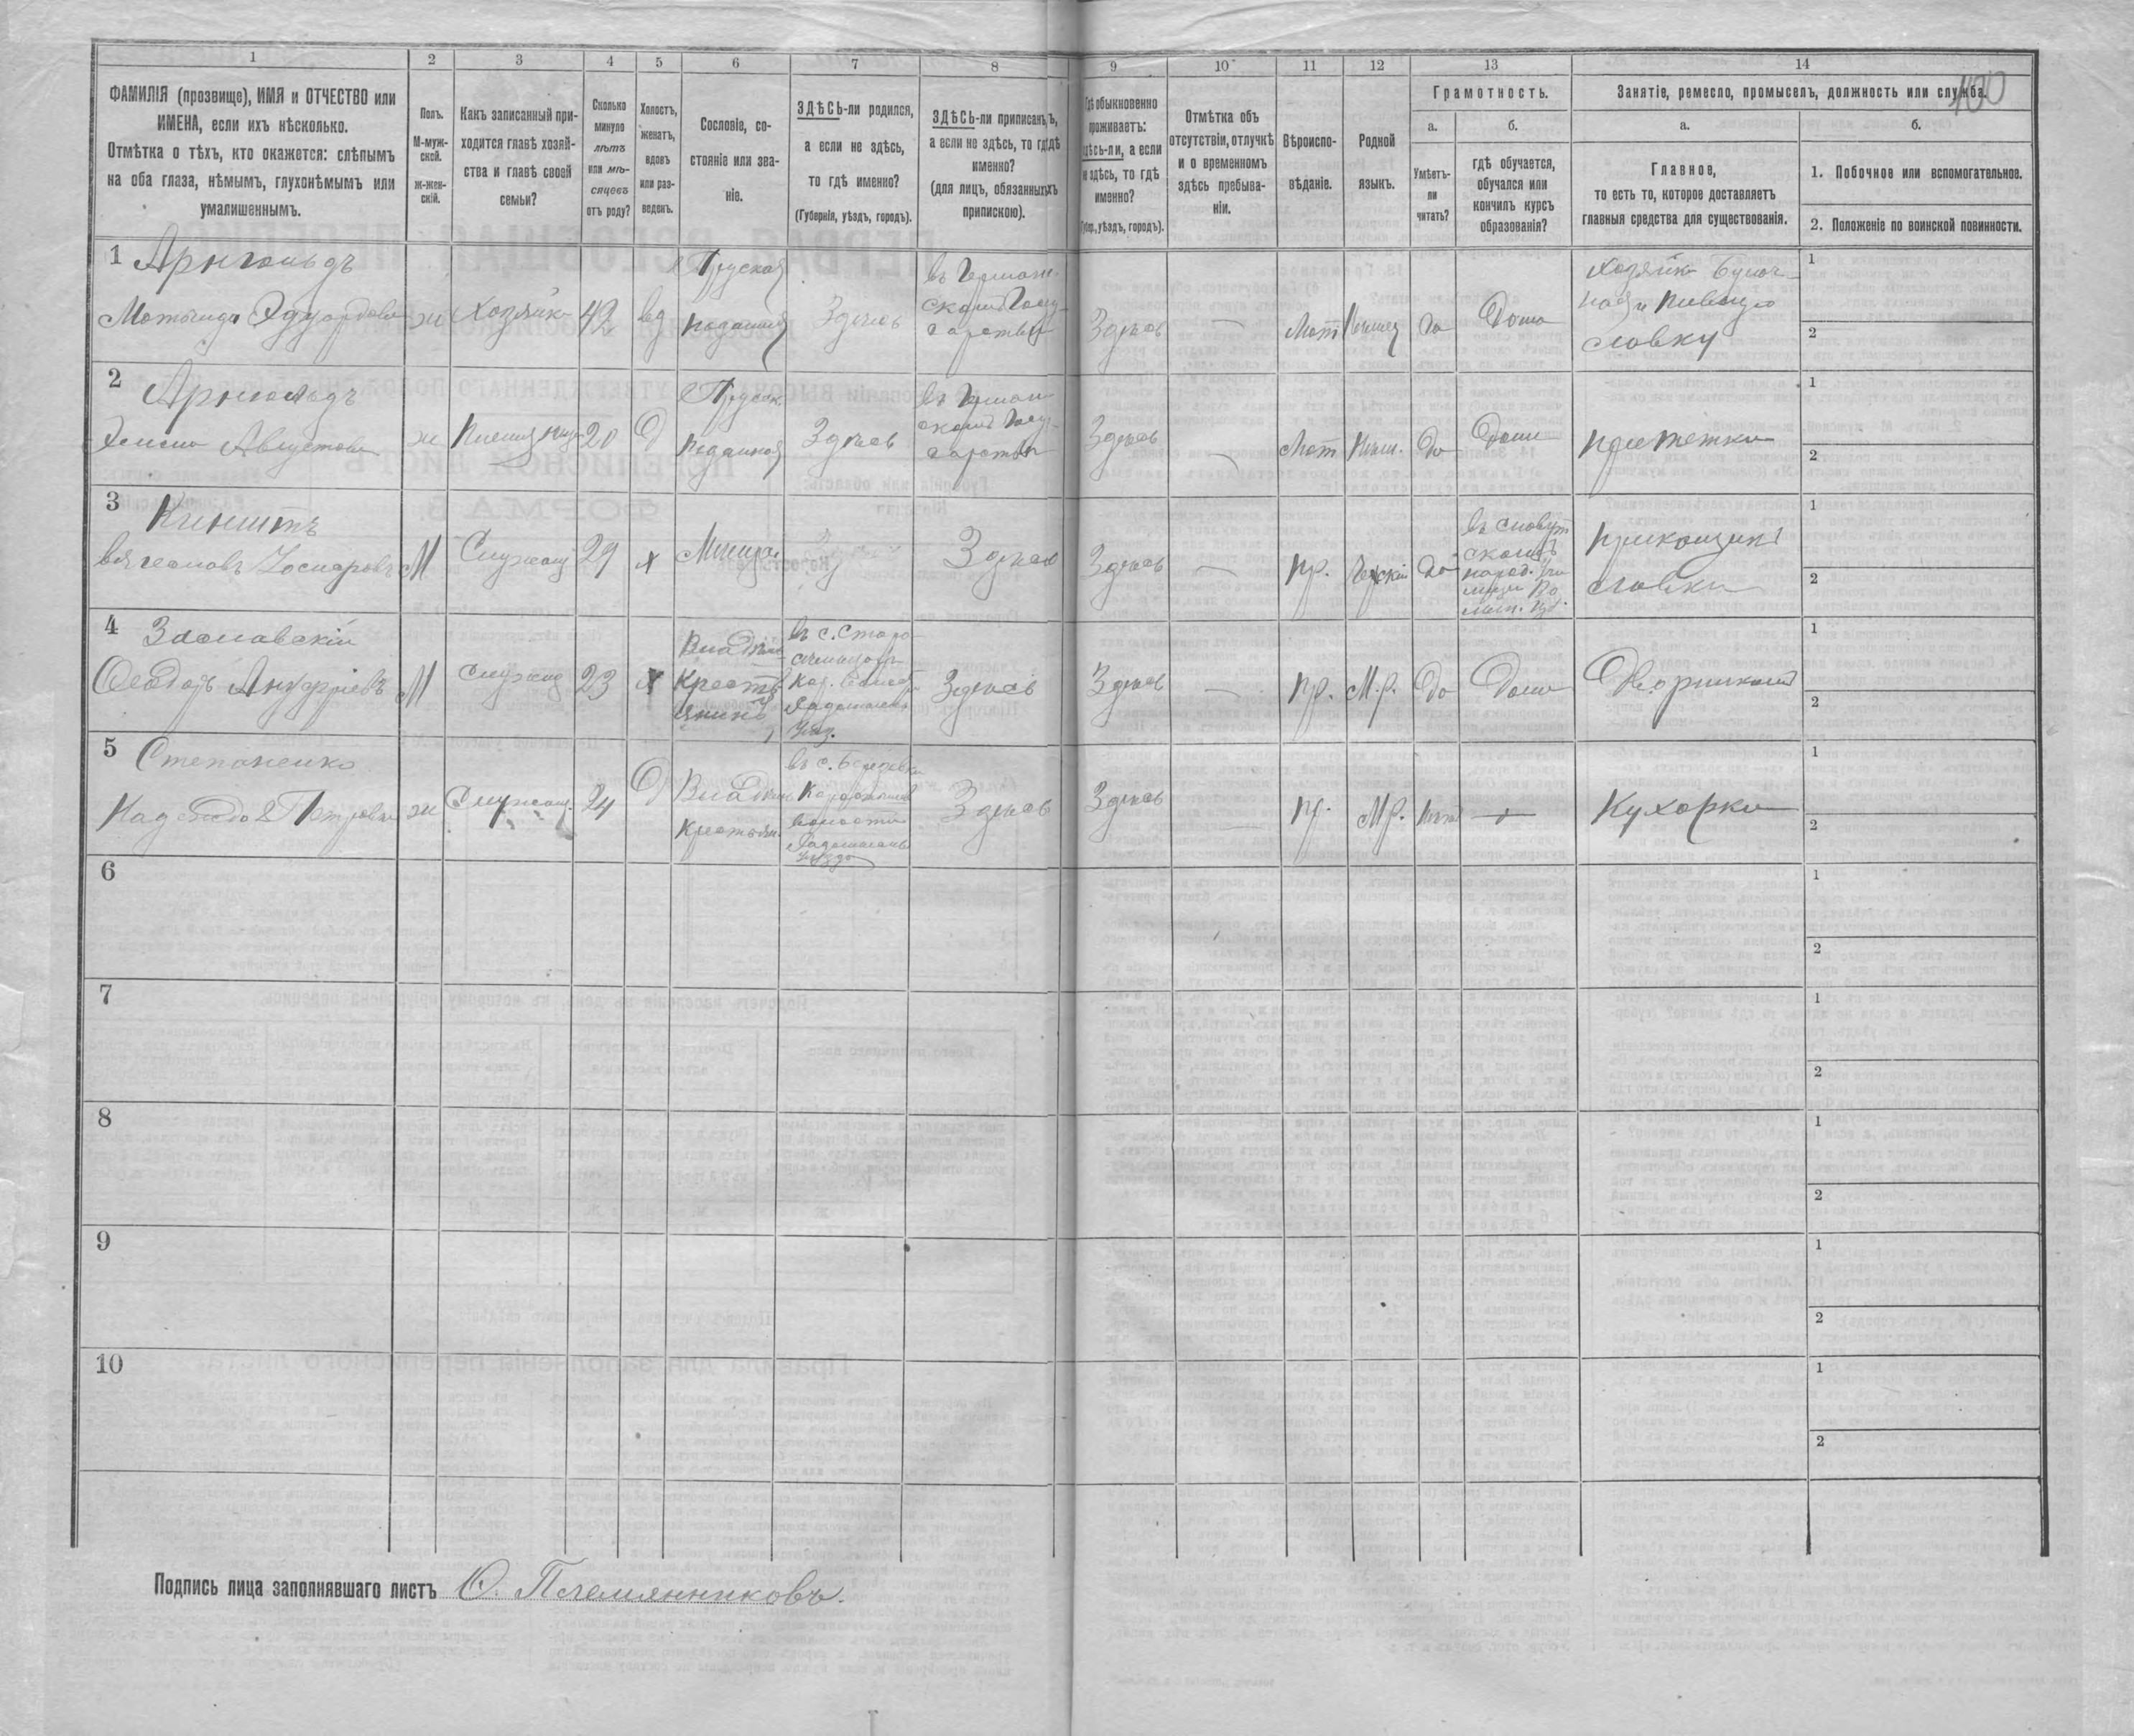 400
1 2 3 4 5 6 7 8 9 10 11 12 13 14
ФАМИЛІЯ (прозвище), ИМЯ и ОТЧЕСТВО или
ИМЕНА, если ихъ нѣсколько.
Отмѣтка о тѣхъ, кто окажется: слѣпымъ
на оба глаза, нѣмымъ, глухонѣмымъ или
умалишеннымъ.
Полъ.
М-муж-
ской.
ж-жен-
скій.
Какъ записанный при-
ходится главѣ хозяй-
ства и главѣ своей
семьи?
Сколько
минуло
лѣтъ
или мѣ-
сяцевъ
отъ роду?
Холостъ,
женатъ,
вдовъ
или раз-
веденъ.
Сословіе, со-
стояніе или зва-
ніе.
ЗДѢСЬ-ли родился,
а если не здѣсь,
то гдѣ именно?
(Губернія, уѣздъ, городъ).
ЗДѢСЬ-ли приписанъ,
а если не здѣсь, то гдѣ
именно?
(для лицъ, обязанныхъ
припискою).
Гдѣ обыкновенно
проживаетъ:
здѣсь-ли, а если
не здѣсь, то гдѣ
именно?
(Губ., уѣздъ, городъ).
Отмѣтка объ
отсутствіи, отлучкѣ
и о временномъ
здѣсь пребыва-
ніи.
Вѣроиспо-
вѣданіе.
Родной
языкъ.
Грамотность.
а.
Умѣетъ-
ли
читать?
б.
гдѣ обучается,
обучался или
кончилъ курсъ
образованія?
Занятіе, ремесло, промыселъ, должность или служба.
а.
Главное,
то есть то, которое доставляетъ
главныя средства для существованія.
б.
1. Побочное или вспомогательное.
2. Положеніе по воинской повинности.
1 Арнгольдъ
Матильда Эдуардовна ж Хозяйка 42 вд Прусская подданная Здѣсь въ Германскомъ Государствѣ Здѣсь — Лют Нѣмец да Дома
Хозяйка булоч
ной и пивную
лавку
1
2
2 Арнгольдъ
Августовна ж 20 Д Прусск. подданная Здѣсь въ Герман скомъ Госу дарствѣ Здѣсь Лют Нѣм. да Дома
1
2
3
М Служащ 29 х Мѣщан. Здѣсь Здѣсь — пр. Чешскій да
народ. учи
прикащикъ
лавки
1
2
4 Заславскій
Ѳеодоръ М служащ 23 х Крестьянинъ
въ с. Старо
Здѣсь Здѣсь — пр. М.р. да Дома Дворникомъ
1
2
5 Степаненко
Петровна ж Служащ. 24 Д Крестьян.
волости
уѣзда
Здѣсь Здѣсь — пр. М.р. нѣтъ — Кухарка
1
2
6
1
2
7
1
2
8
1
2
9
1
2
10
1
2
Подпись лица заполнявшаго листъ О. Племянниковъ.